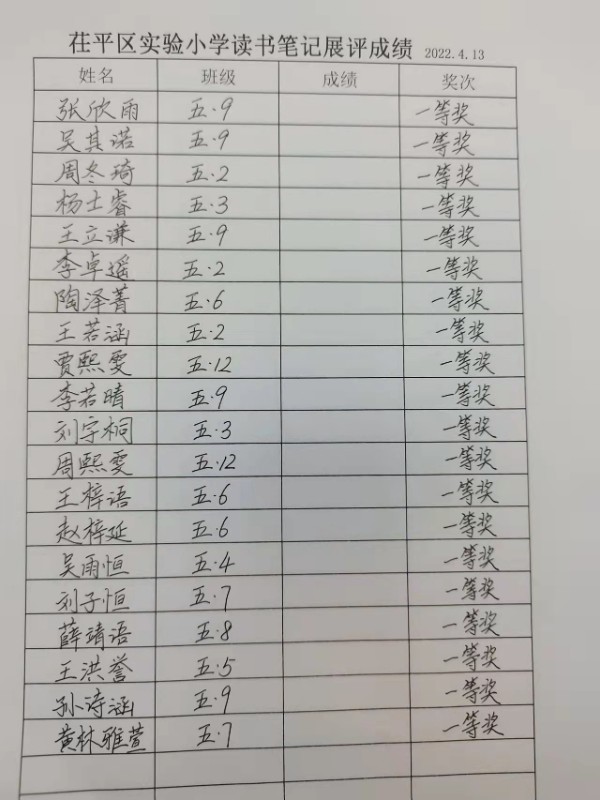 茌平区实验小学读书笔记展评成绩 2022.4.13
姓名 班级 成绩 奖次
张欣雨 五·9 一等奖
吴其诺 五·9 一等奖
周冬琦 五·2 一等奖
杨士睿 五·3 一等奖
王立谦 五·9 一等奖
李卓遥 五·2 一等奖
陶泽菁 五·6 一等奖
王若涵 五·2 一等奖
贾熙雯 五·12 一等奖
李若晴 五·9 一等奖
刘宇桐 五·3 一等奖
周熙雯 五·12 一等奖
王梓语 五·6 一等奖
赵梓延 五·6 一等奖
吴雨恒 五·4 一等奖
刘子恒 五·7 一等奖
薛靖语 五·8 一等奖
王洪誉 五·5 一等奖
孙诗涵 五·9 一等奖
黄林雅萱 五·7 一等奖